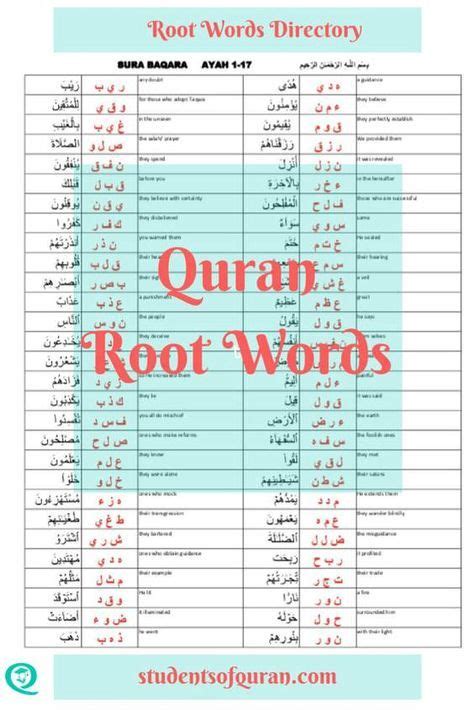 Root Words Directory
SURA BAQARA AYAH 1-17 بِسْمِ اللَّهِ الرَّحْمَٰنِ الرَّحِيمِ
رَيْبَ ر ي ب any doubt هُدًى ه د ي a guidance
لِلْمُتَّقِينَ و ق ي for those who adopt Taqwa يُؤْمِنُونَ ء م ن they believe
بِالْغَيْبِ غ ي ب in the unseen يُقِيمُونَ ق و م they perfectly establish
الصَّلَاةَ ص ل و the salah/ prayer رَزَقْنَاهُمْ ر ز ق We provided them
يُنْفِقُونَ ن ف ق they spend أُنْزِلَ ن ز ل it was revealed
قَبْلِكَ ق ب ل before you بِالْآخِرَةِ ء خ ر in the hereafter
يُوقِنُونَ ي ق ن they believe with certainty الْمُفْلِحُونَ ف ل ح those who are successful
كَفَرُوا ك ف ر they disbelieved سَوَاءٌ س و ي same
أَنْذَرْتَهُمْ ن ذ ر you warned them خَتَمَ خ ت م He sealed
قُلُوبِهِمْ ق ل ب their س م ع their hearing
أَبْصَارِهِمْ ب ص ر their a veil
عَذَابٌ ع ذ ب a punishment عَظِيمٌ ع ظ م great
النَّاسِ the people يَقُولُ ق و ل he says
they deceive
يَشْعُرُونَ
فَزَادَهُمُ ز ي د so He increased them أَلِيمٌ ء ل م painful
يَكْذِبُونَ ك ذ ب they lie قِيلَ ق و ل it was said
تُفْسِدُوا ف س د you all do mischief الْأَرْضِ ء ر ض the earth
مُصْلِحُونَ ص ل ح ones who make reforms السُّفَهَاءُ س ف ه the foolish ones
يَعْلَمُونَ ع ل م they know لَقُوا ل ق ي they met
خَلَوْا خ ل و they were alone شَيَاطِينِهِمْ ش ط ن their satans
مُسْتَهْزِئُونَ ه ز ء ones who mock يَمُدُّهُمْ م د د He extends them
طُغْيَانِهِمْ ط غ ي their transgression يَعْمَهُونَ ع م ه they wander blindly
اشْتَرَوُا ش ر ي they bartered الضَّلَالَةَ ض ل ل the misguidance
مُهْتَدِينَ ه د ي ones who obtain guidance رَبِحَتْ ر ب ح it profited
مَثَلُهُمْ م ث ل their example تِجَارَتُهُمْ ت ج ر their trade
اسْتَوْقَدَ و ق د He lit نَارًا ن و ر a fire
أَضَاءَتْ ض و ء it illuminated حَوْلَهُ ح و ل surrounded him
ذَهَبَ ذ ه ب he went بِنُورِهِمْ ن و ر with their light
Quran
Root Words
studentsofquran.com